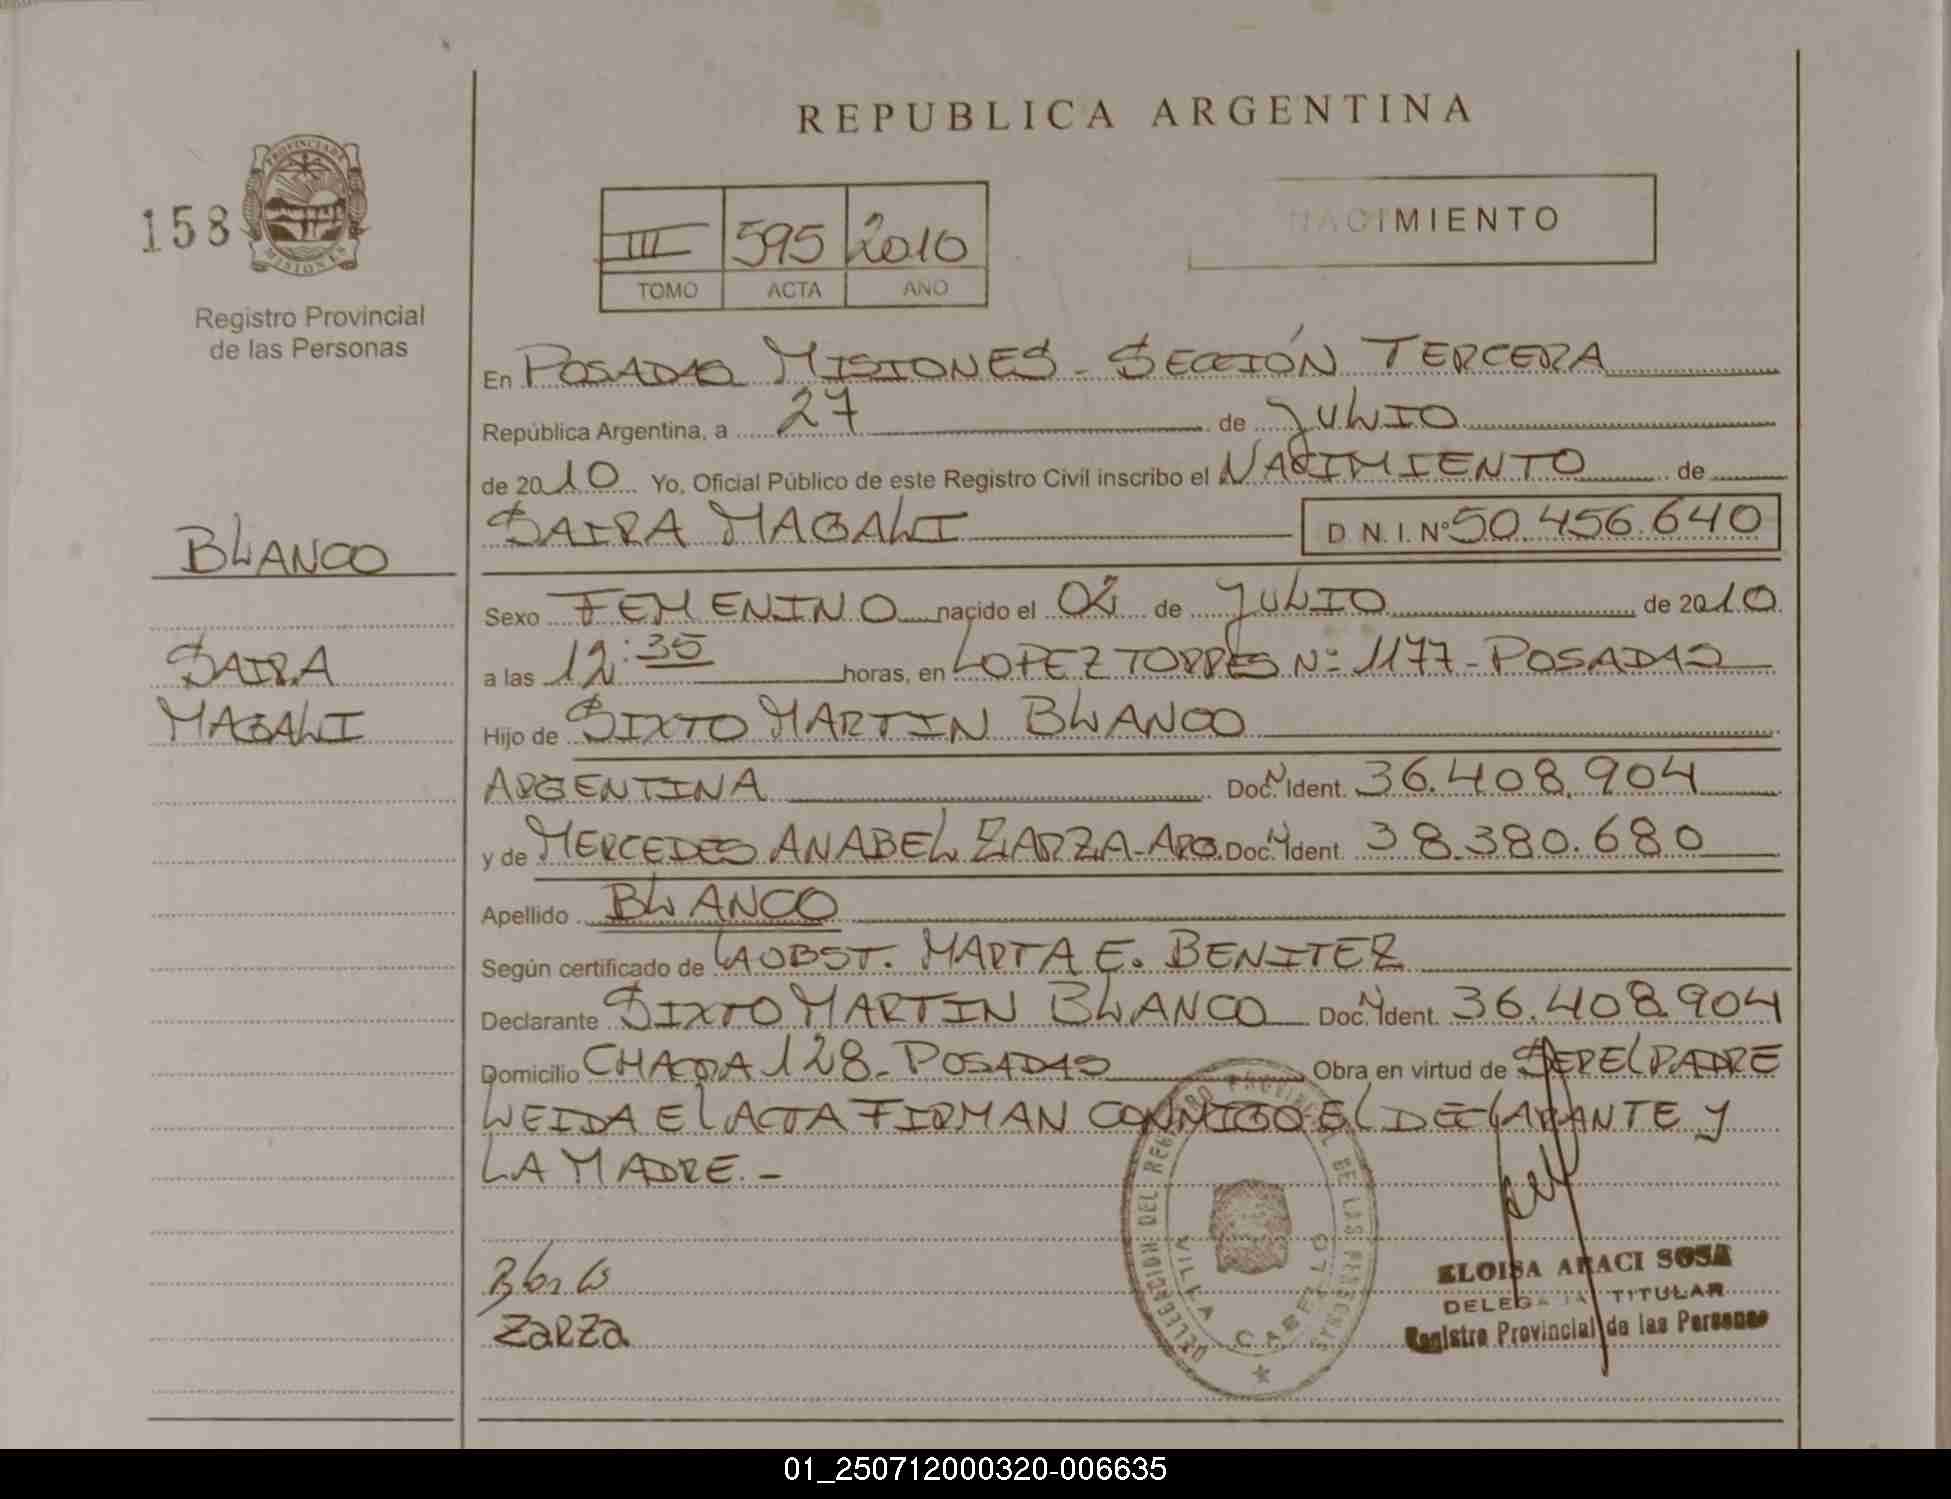 REPUBLICA ARGENTINA
158
PROVINCIA DE
MISIONES
Registro Provincial
de las Personas
III 595 2010
TOMO ACTA AÑO
NACIMIENTO
En POSADAS MISIONES - SECCIÓN TERCERA
República Argentina, a 27 de JULIO
de 2010 Yo, Oficial Público de este Registro Civil inscribo el NACIMIENTO de
SAIRA MAGALI D N. I. Nº 50.456.640
BLANCO
SAIRA
MAGALI
Sexo FEMENINO nacido el 02 de JULIO de 2010
a las 12:35 horas, en LOPEZ TORRES Nº 1177 - POSADAS
Hijo de SIXTO MARTIN BLANCO
ARGENTINA Doc. N Ident. 36.408.904
y de MERCEDES ANABEL ZARZA - ARG. Doc. N Ident. 38.380.680
Apellido BLANCO
Según certificado de LA OBST. MARTA E. BENITEZ
Declarante SIXTO MARTIN BLANCO Doc. N Ident. 36.408.904
Domicilio CHACRA 128 - POSADAS Obra en virtud de SER EL PADRE
LEIDA EL ACTA FIRMAN CONMIGO EL DECLARANTE Y
LA MADRE. -
ZARZA
DEL REGISTRO PROVINCIAL DE LAS PERSONAS
VILLA CABELLO
ELOISA ARACI SOSA
DELEGADA TITULAR
Registro Provincial de las Personas
01_250712000320-006635